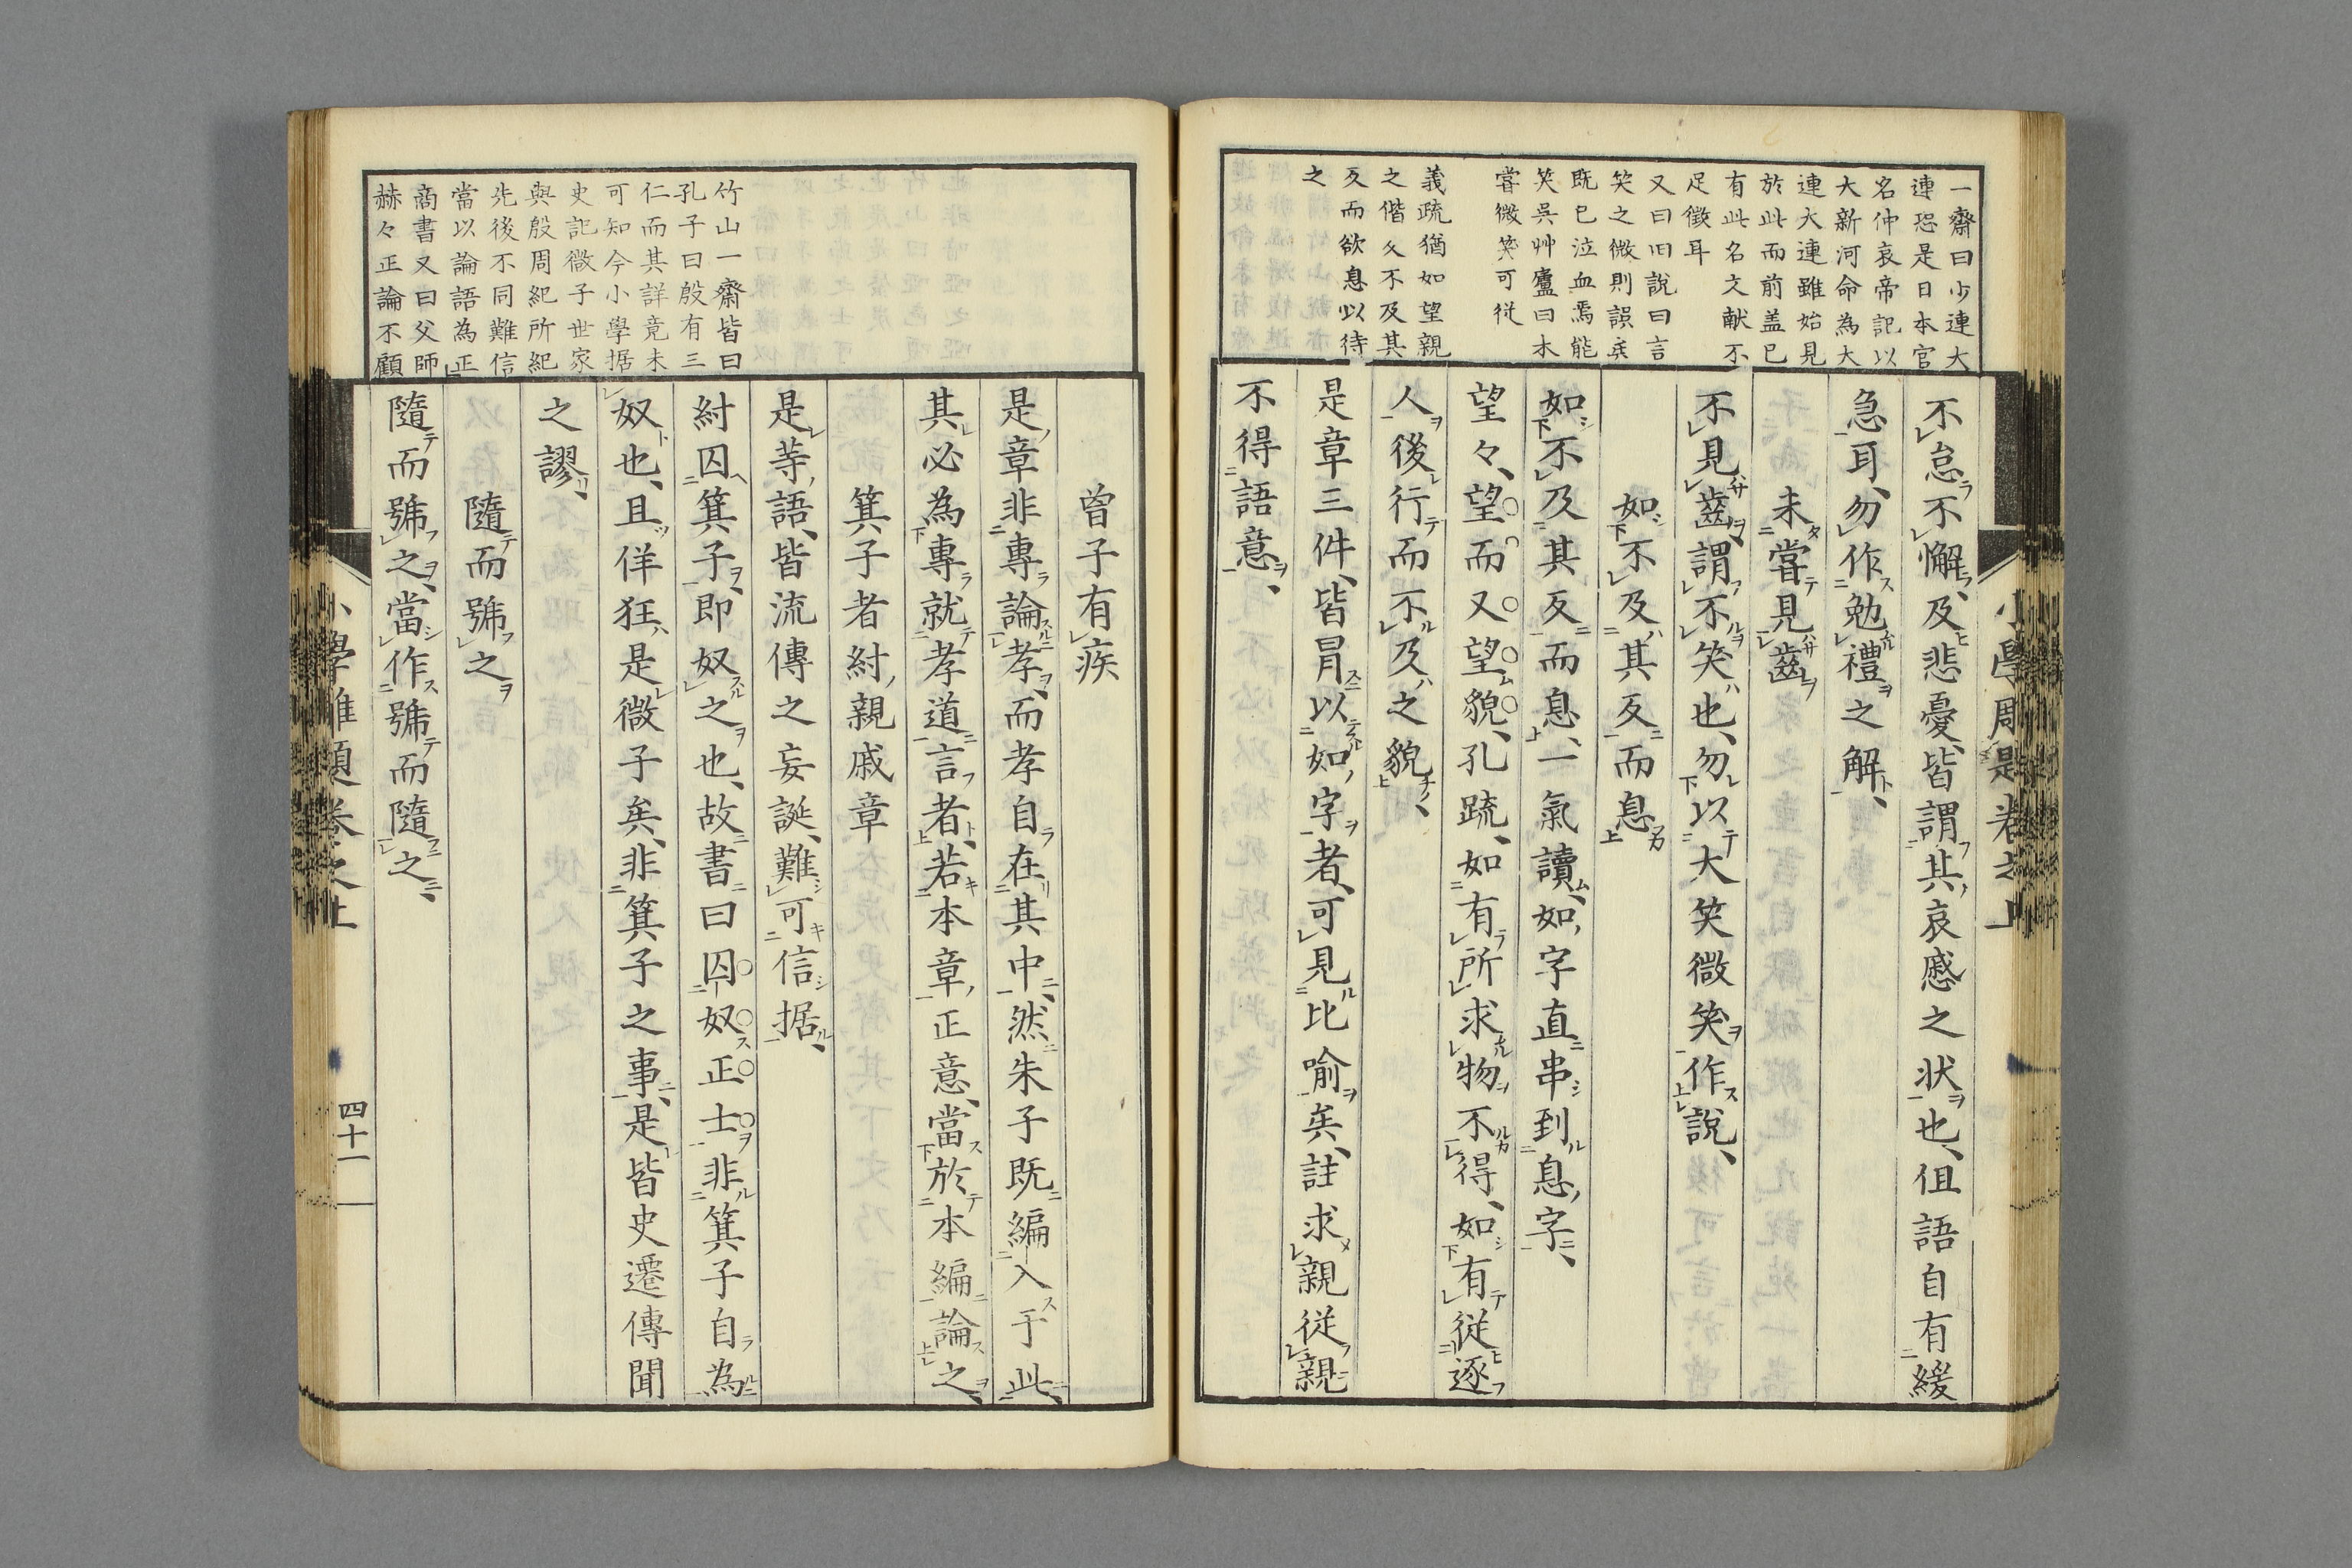 一齋曰少連大
連恐是日本官
名仲哀帝記以
大新河命為大
連大連雖始見
於此而前盖已
有此名文献不
足徴耳
又曰旧說曰言
笑之微則誤矣
既已泣血焉能
笑吳艸廬曰未
嘗微笑可從
義疏猶如望親
之偕久不及其
反而欲息以待
之
不怠不懈及悲憂皆謂其哀慼之状也但語自有緩
急耳勿作勉禮之解
未嘗見齒
不見齒謂不笑也勿以大笑微笑作說
如不及其反而息
如不及其反而息一氣讀如字直串到息字
望々望而又望貌孔疏如有所求物不得如有從逐
人後行而不及之貌
是章三件皆冐以如字者可見比喻矣註求親從親
不得語意
竹山一齋皆曰
孔子曰殷有三
仁而其詳竟未
可知今小學据
史記微子世家
與殷周紀所紀
先後不同難信
當以論語為正
商書又曰父師
赫々正論不顧
曽子有疾
是章非專論孝而孝自在其中然朱子既編入于此
其必為專就孝道言者若本章正意當於本編論之
箕子者紂親戚章
是等語皆流傳之妄誕難可信据
紂囚箕子即奴之也故書曰囚奴正士非箕子自為
奴也且佯狂是微子矣非箕子之事是皆史遷傳聞
之謬
隨而號之
隨而號之當作號而隨之
四十一